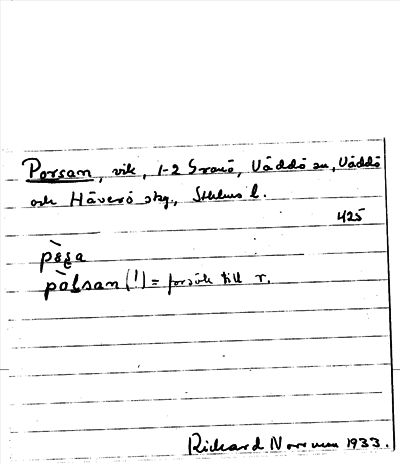 Porsan, vik, 1-2 Granö, Väddö sn, Väddö
och Häverö skg., Sthlms l.
425
pɵs̨a
pålsan (!) = försök till r.
Rickard Norrman 1933.